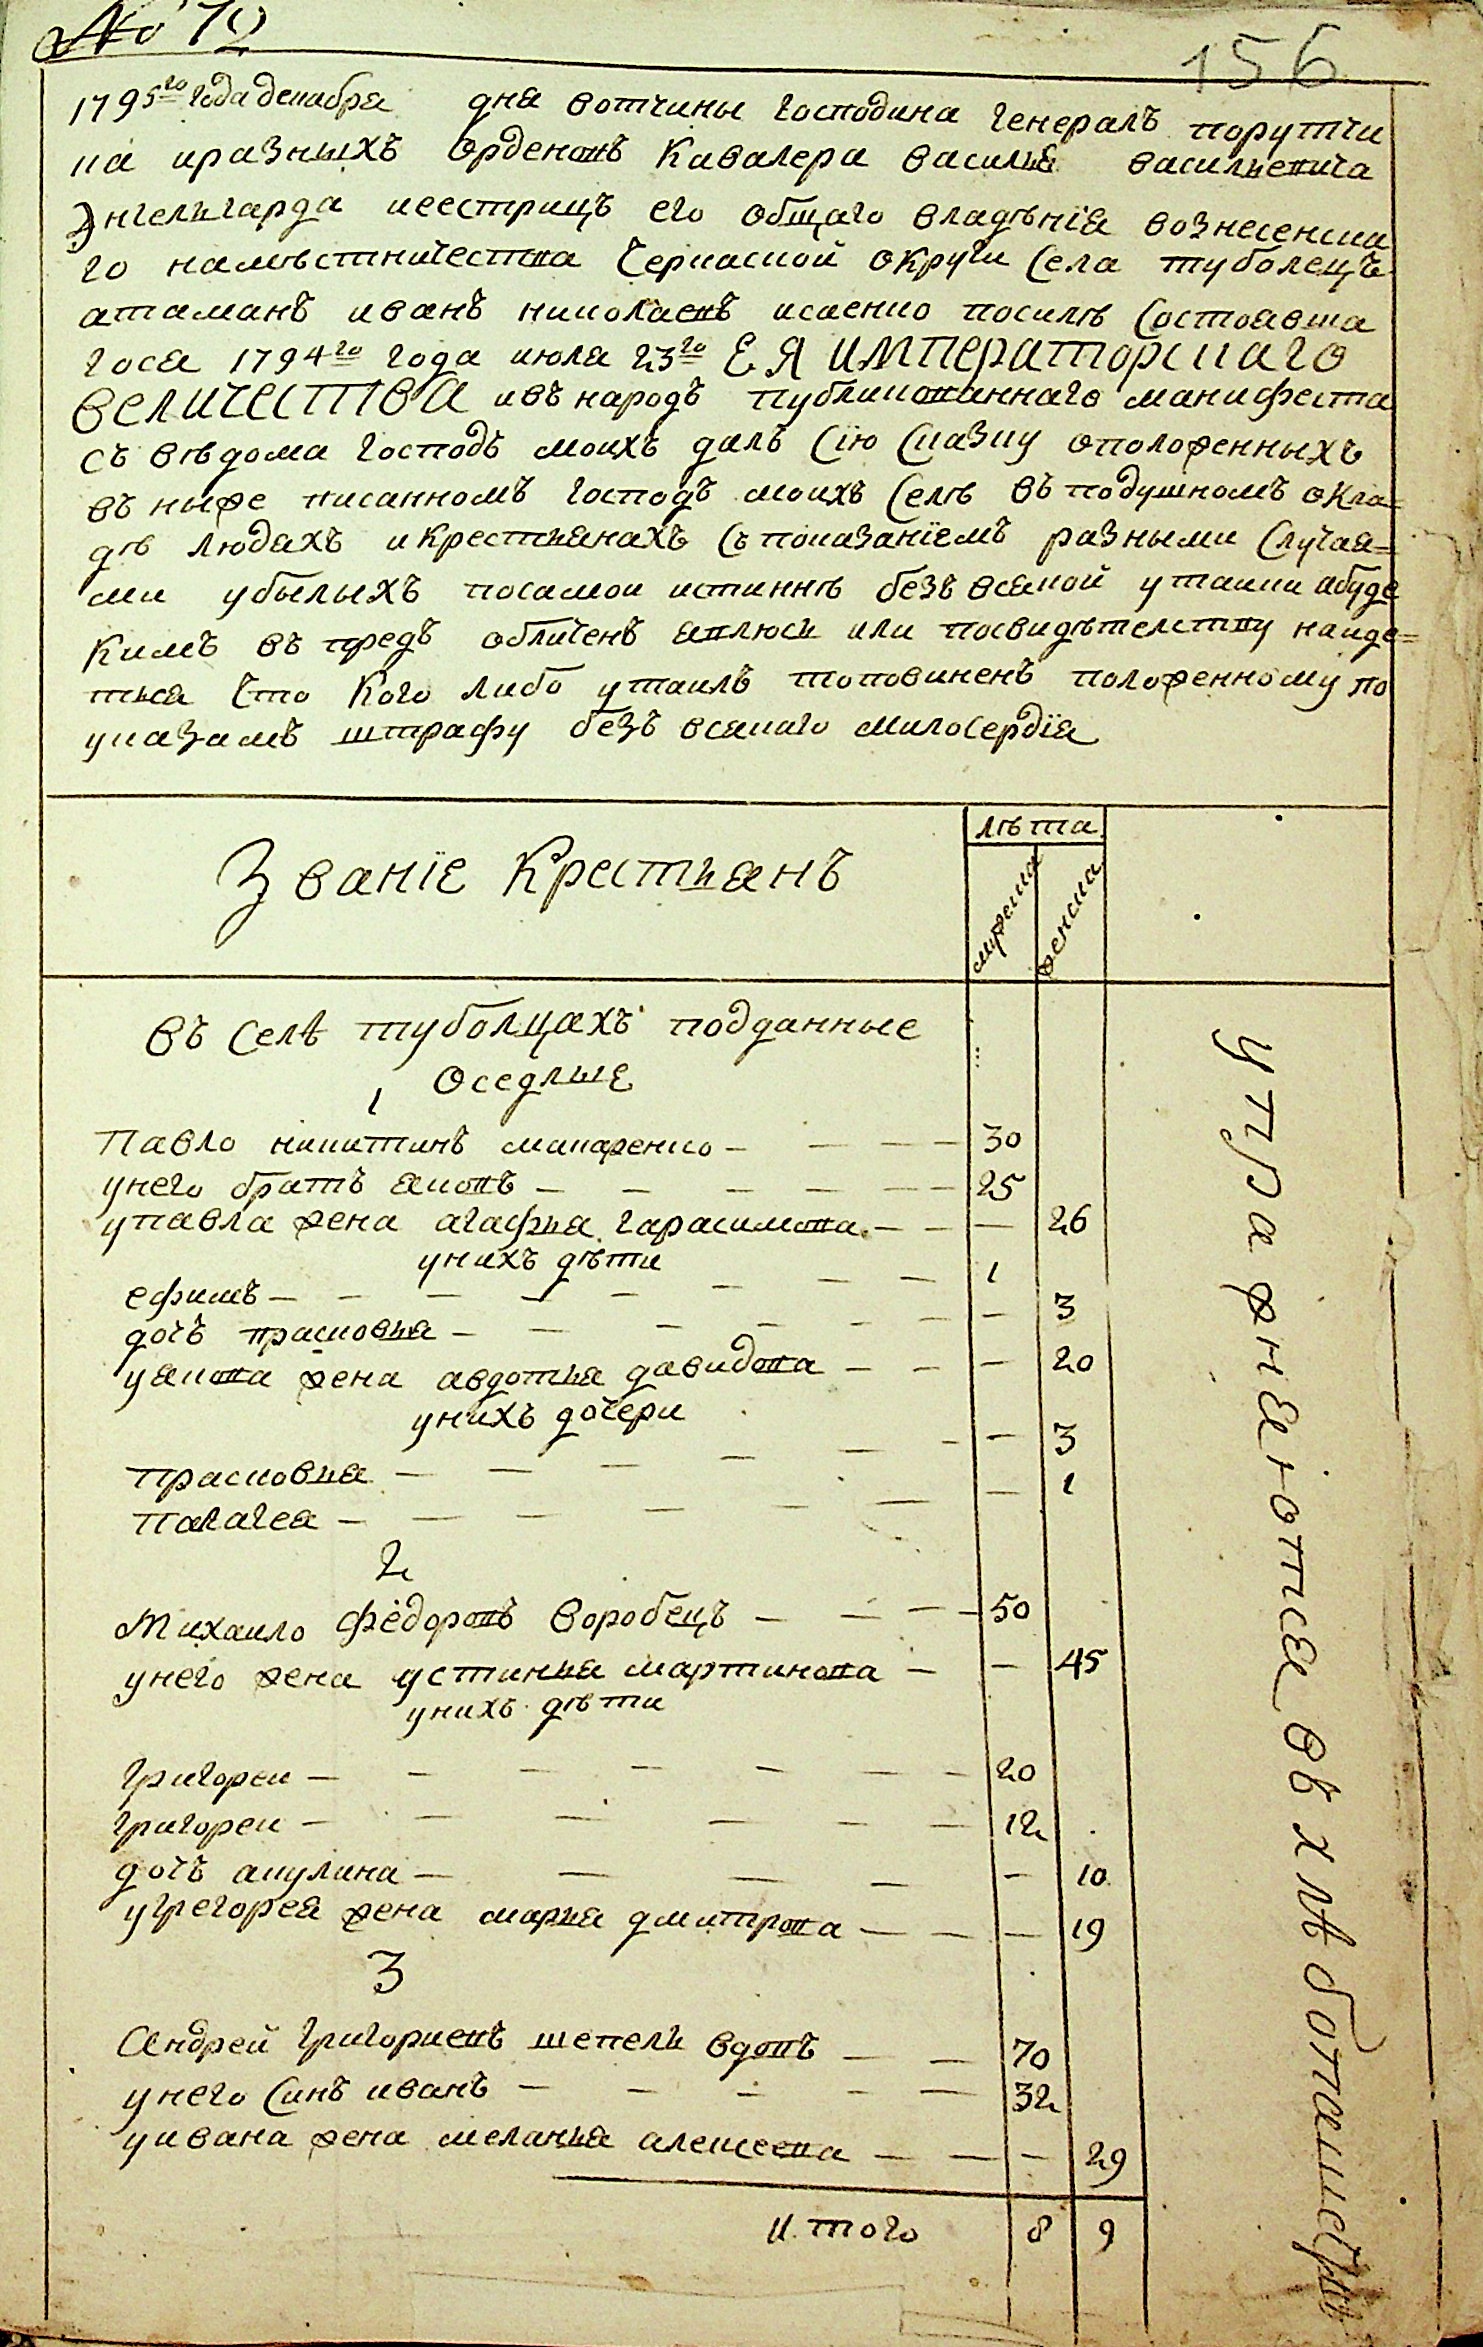 № 12
156
1795го года декабря дня вотчины господина генералъ порутчи
ка иразныхъ орденовъ Кавалера василья васильевича
Энгельгарда исестрицъ его общаго владѣнія вознесенска
го намѣстничества Черкаской округи Села туболецъ
атаманъ иванъ николаевъ исаенко посилѣ Состоявша
гося 1794го года июля 23го ЕЯ ИМПЕраторскаго
ВЕЛИЧЕСТВА ивъ народъ публикованнаго манифеста
съ вѣдома господъ моихъ далъ Сію Сказку оположенныхъ
въ ниже писанномъ господъ моихъ Селѣ въ подушномъ окла=
дѣ людяхъ икрестьянахъ Съ показаніемъ разными Случая=
ми убылыхъ посамои истиннѣ безъ всякой утаики абуде
Кимъ въ предъ обличенъ явлюсь или посвидѣтелству наиде=
тъся Что Кого либо утаилъ топовиненъ положенному по
указамъ штрафу безъ всякаго милосердія
Званіе Крестьянъ
лѣта
мужеска
женска
въ Селѣ туболцахъ подданные
оседлые
1
Павло никитинъ макаренко — — — — 30
унего братъ яковъ — — — — — — 25
упавла жена агафья гарасимова — — — 26
унихъ дѣти
ефимъ — — — — — — — — 1
дочъ прасковья — — — — — — — 3
уякова жена авдотья давидова — — — 20
унихъ дочери
прасковья — — — — — — — 3
палагея — — — — — — — 1
2
Михаило федоровъ воробецъ — — — — 50
унего жена устинья мартинова — — 45
унихъ дѣти
григореи — — — — — — — 20
григореи — — — — — — 12
дочъ акулина — — — — — 10
угрегорея жена марья дмитрова — — — 19
3
Андрей григориевъ шепель вдовъ — — 70
унего Синъ иванъ — — — — — 32
уивана жена меланья алексеева — — — 29
И того 8 9
упражняются въ хлѣбопашествѣ